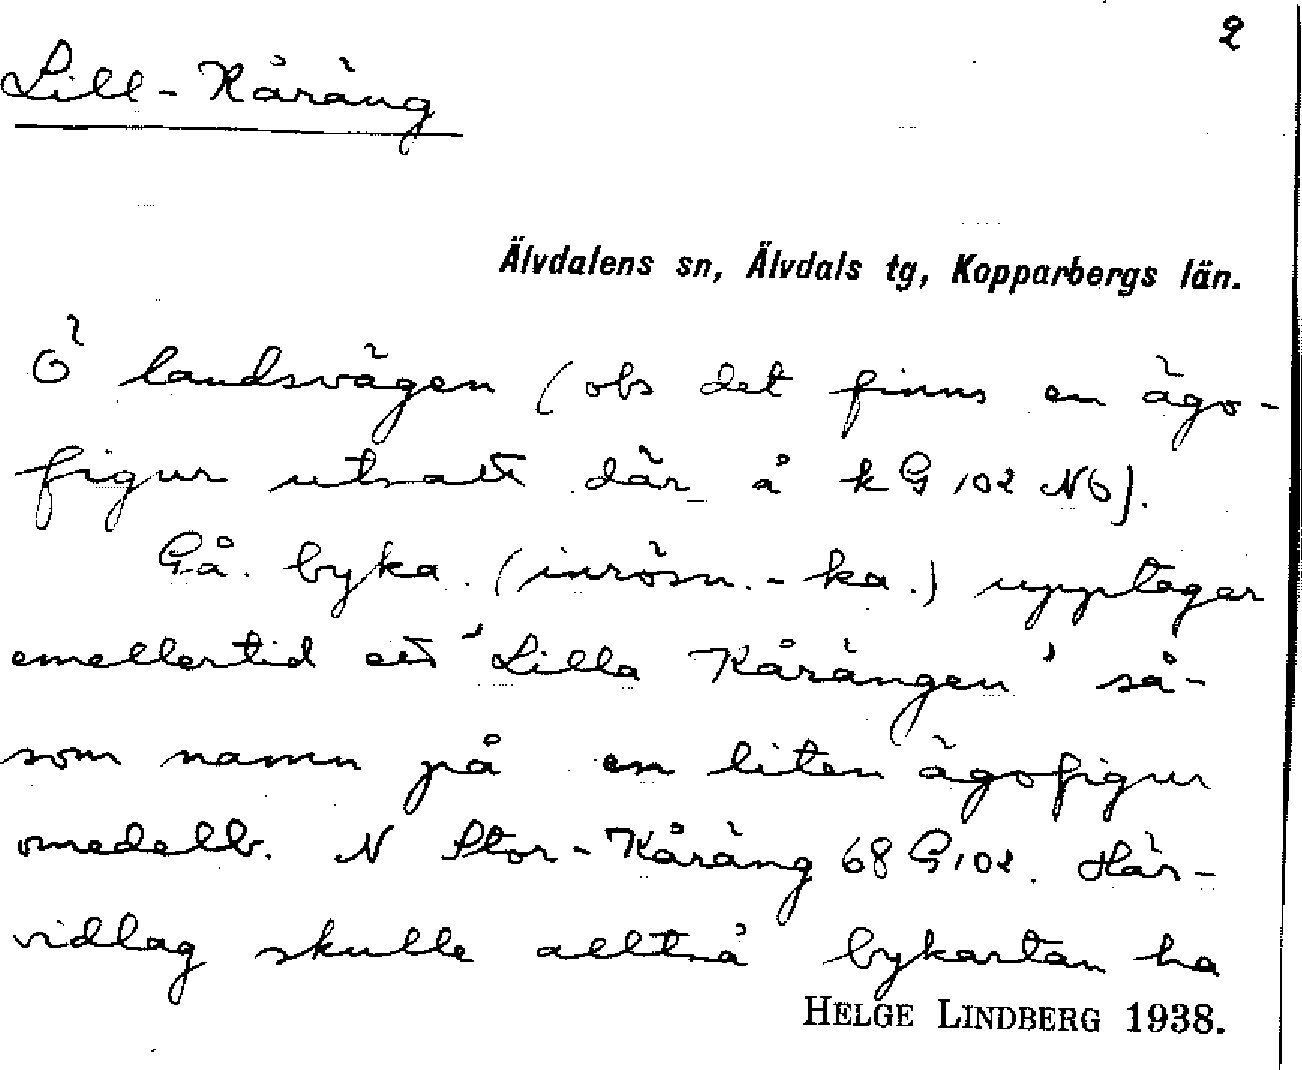 2
Lill-Kåräng
Älvdalens sn, Älvdals tg, Kopparbergs län.
Ö landsvägen (obs det finns en ägo-
figur utsatt där å k G 102 NÖ).
Gå. byka. (inrösn.-ka.) upptager
emellertid ett "Lilla Kårängen" så-
som namn på en liten ägofigur
omedelb. N Stor-Kåräng 68 G 102. Här-
vidlag skulle alltså bykartan ha
HELGE LINDBERG 1938.